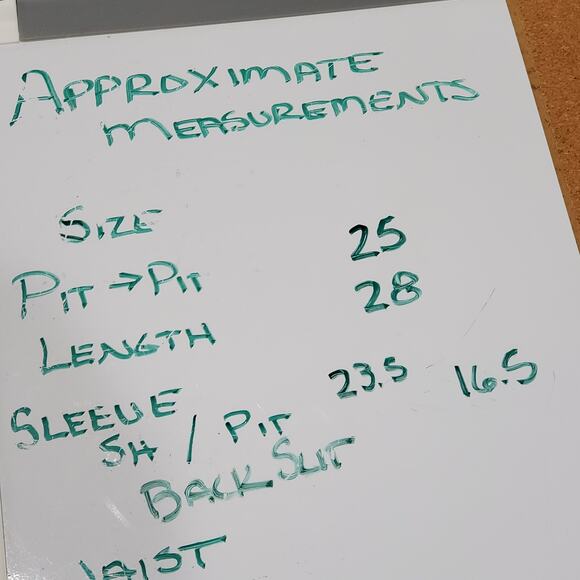 APPROXIMATE
MEASUREMENTS
SIZE
PIT → PIT 25
LENGTH 28
SLEEVE 23.5 16.5
SH / PIT
BACK SLIT
WAIST